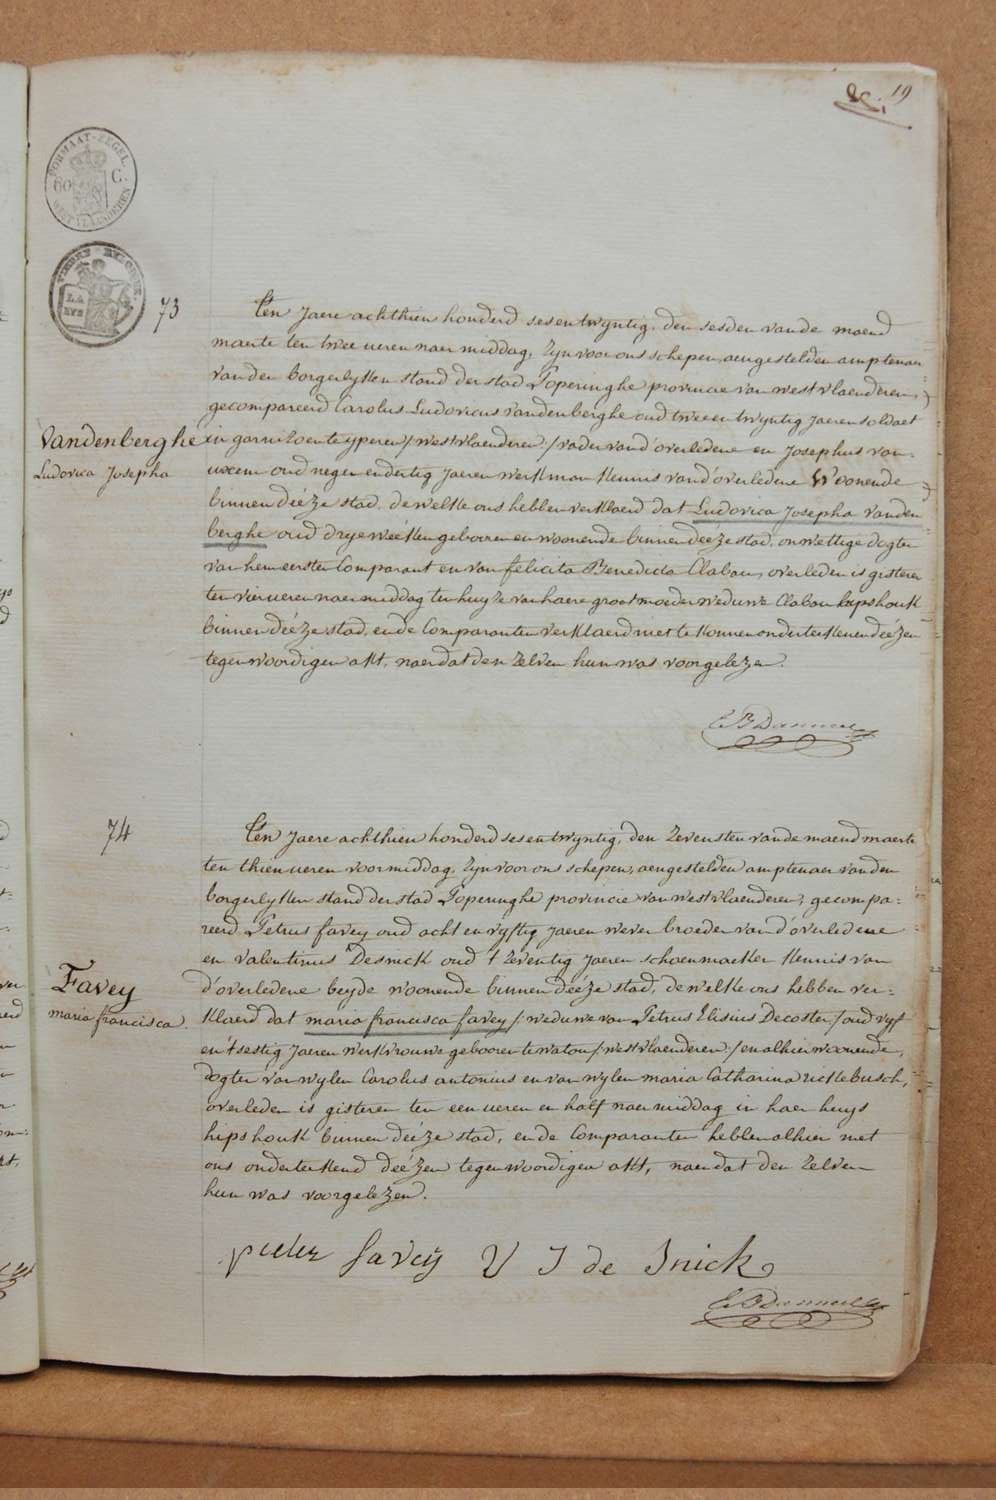 19
FORMAAT-ZEGEL
60 C.
WEST VLAANDEREN
LA
73
Ten Jaere achthien honderd sesentwyntig, den sesden vande maend
maerte ten twee ueren naer middag, zyn voor ons schepen, aengestelden amptenaer
van den borgerlyken stand der stad Poperinghe provincie van westvlaenderen,
gecompareerd Carolus Ludovicus Vandenberghe oud twee en twyntig jaeren soldaet
Vandenberghe
Ludovica Josepha
in garnisoen te yperen /westvlaenderen/ vader vand'overledene en Josephus van-
uxem oud negen endertig jaeren werkman kennis vand'overledene Woonende
binnen deéze stad, de welke ons hebben verklaerd dat Ludovica Josepha Vanden
berghe oud drye wéeken gebooren en woonende binnen deéze stad, onwettige dogter
van hem eersten Comparant en van felicita Benedicta Clabau, overleden is gisteren
ten vier ueren naermiddag ten huyze van haere grootmoeder weduwe Clabau hipshouk
binnen deéze stad, en de Comparanten verklaerd niet te konnen onderteekenen deézen
tegenwoordigen akt, naer dat den zelven hun was voorgelezen.
74
Ten Jaere achthien honderd sesentwyntig, den zevensten vande maend maerte
ten thien ueren voormiddag, zyn voor ons schepen, aengestelden amptenaer van den
borgerlyken stand der stad Poperinghe provincie van westvlaenderen, gecompa=
reerd Petrus favey oud acht en vyftig jaeren wever broeder van d'overledene
en Valentinus Desnick oud t'zeventig jaeren schoenmaeker kennis van
d'overledene beyde woonende binnen deéze stad, de welke ons hebben ver=
Favey
maria francisca.
klaerd dat maria francisca favey /weduwe van Petrus Elisius Decoster/ oud vyf
en t'sestig jaeren werkvrouwe gebooren te watou /westvlaenderen/ en alhier woonende,
dogter van wylen Carolus antonius en van wylen maria Catharina rickebusch,
overleden is gisteren ten een ueren en half naermiddag in haer huys
hipshouk binnen deéze stad, en de Comparanten hebben alhier met
ons onderteekend deézen tegenwoordigen akt, naer dat den zelven
hun was voorgelezen.
pieter favey V J de Snick